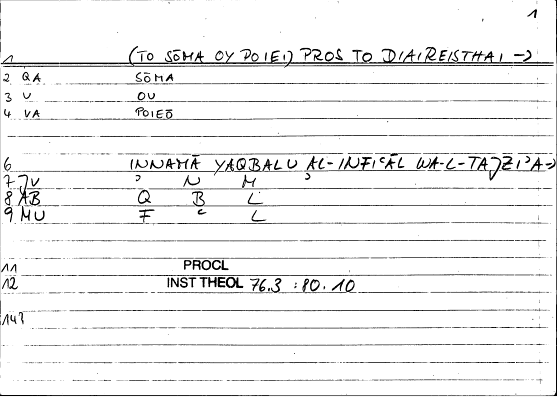 1
1 (TO SŌMA OY POIEI) PROS TO DIAIREISTHAI →
2 QA SŌMA
3 V OU
4 VA POIEŌ
6 INNAMĀ YAQBALU AL-INFIʿĀL WA-L-TAǦZIʾA →
7 ǦV ʾ N M ʾ
8 AB Q B L
9 MU F ʿ L
11 PROCL
12 INST THEOL 76.3 :80.10